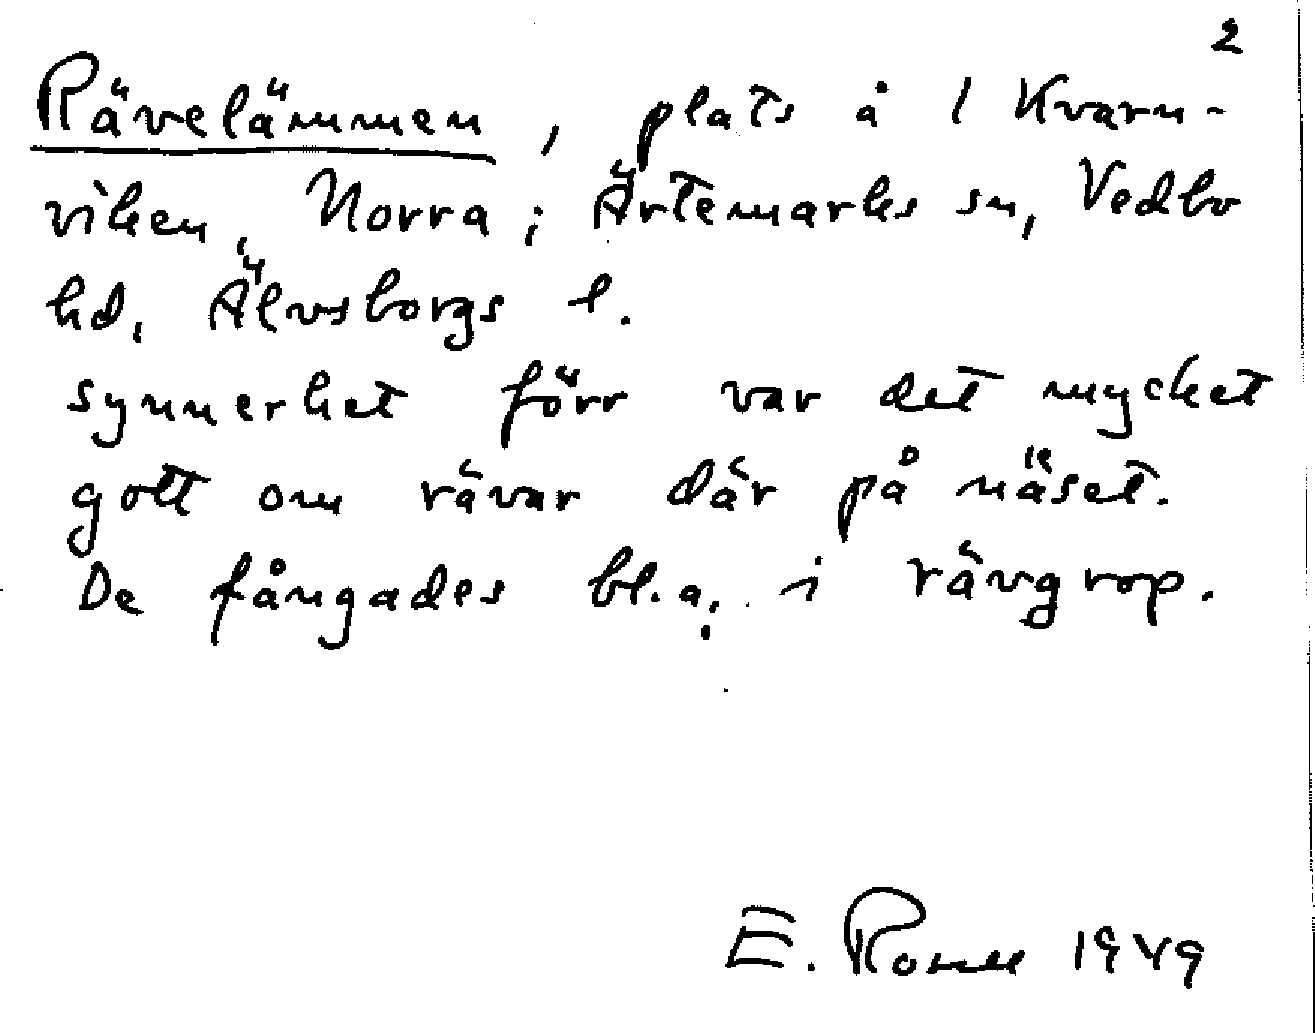 2
Rävelämmen, plats å 1 Kvarn-
viken, Norra i Ärtemarks sn, Vedbo
hd, Älvsborgs l.
synnerhet förr var det mycket
gott om rävar där på näset.
De fångades bl.a. i rävgrop.
E. 1949